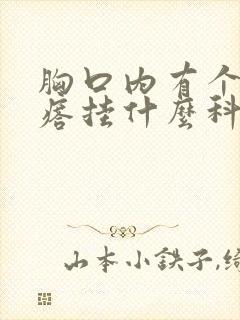 胸口内有个
痞挂什麼科
山本小鉄子,绮